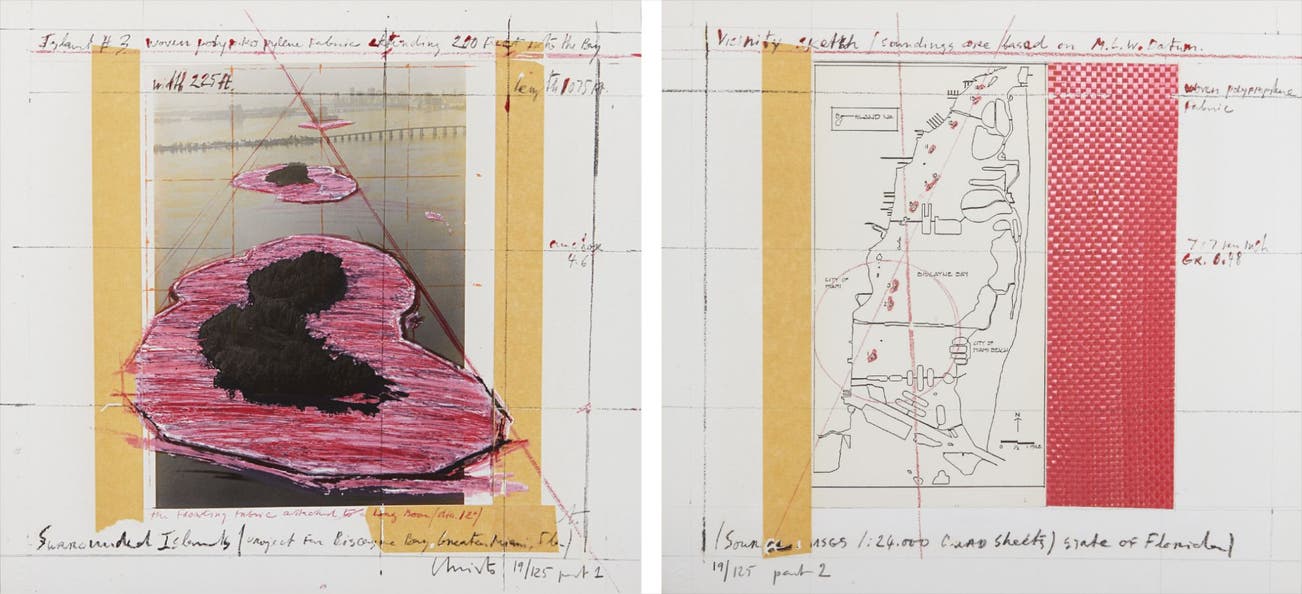 Island # 3 woven polypropylene fabric extending 200 Feet into the Bay
width 225 ft.
length 1075 ft
4.6
the Floating Fabric attached to a long Boom (dia. 12")
Surrounded Islands (project for Biscayne Bay, Greater Miami, Fla)
Christo 19/125 part 1
Vicinity sketch (soundings are based on M.L.W. Datum.
woven polypropylene
Fabric
ISLAND NO.
BISCAYNE BAY
CITY OF
MIAMI
CITY OF
MIAMI BEACH
N
0 ½ 1 MILE
GR. 6.48
(Source USGS 1:24.000 Quad sheets) state of Florida)
19/125 part 2